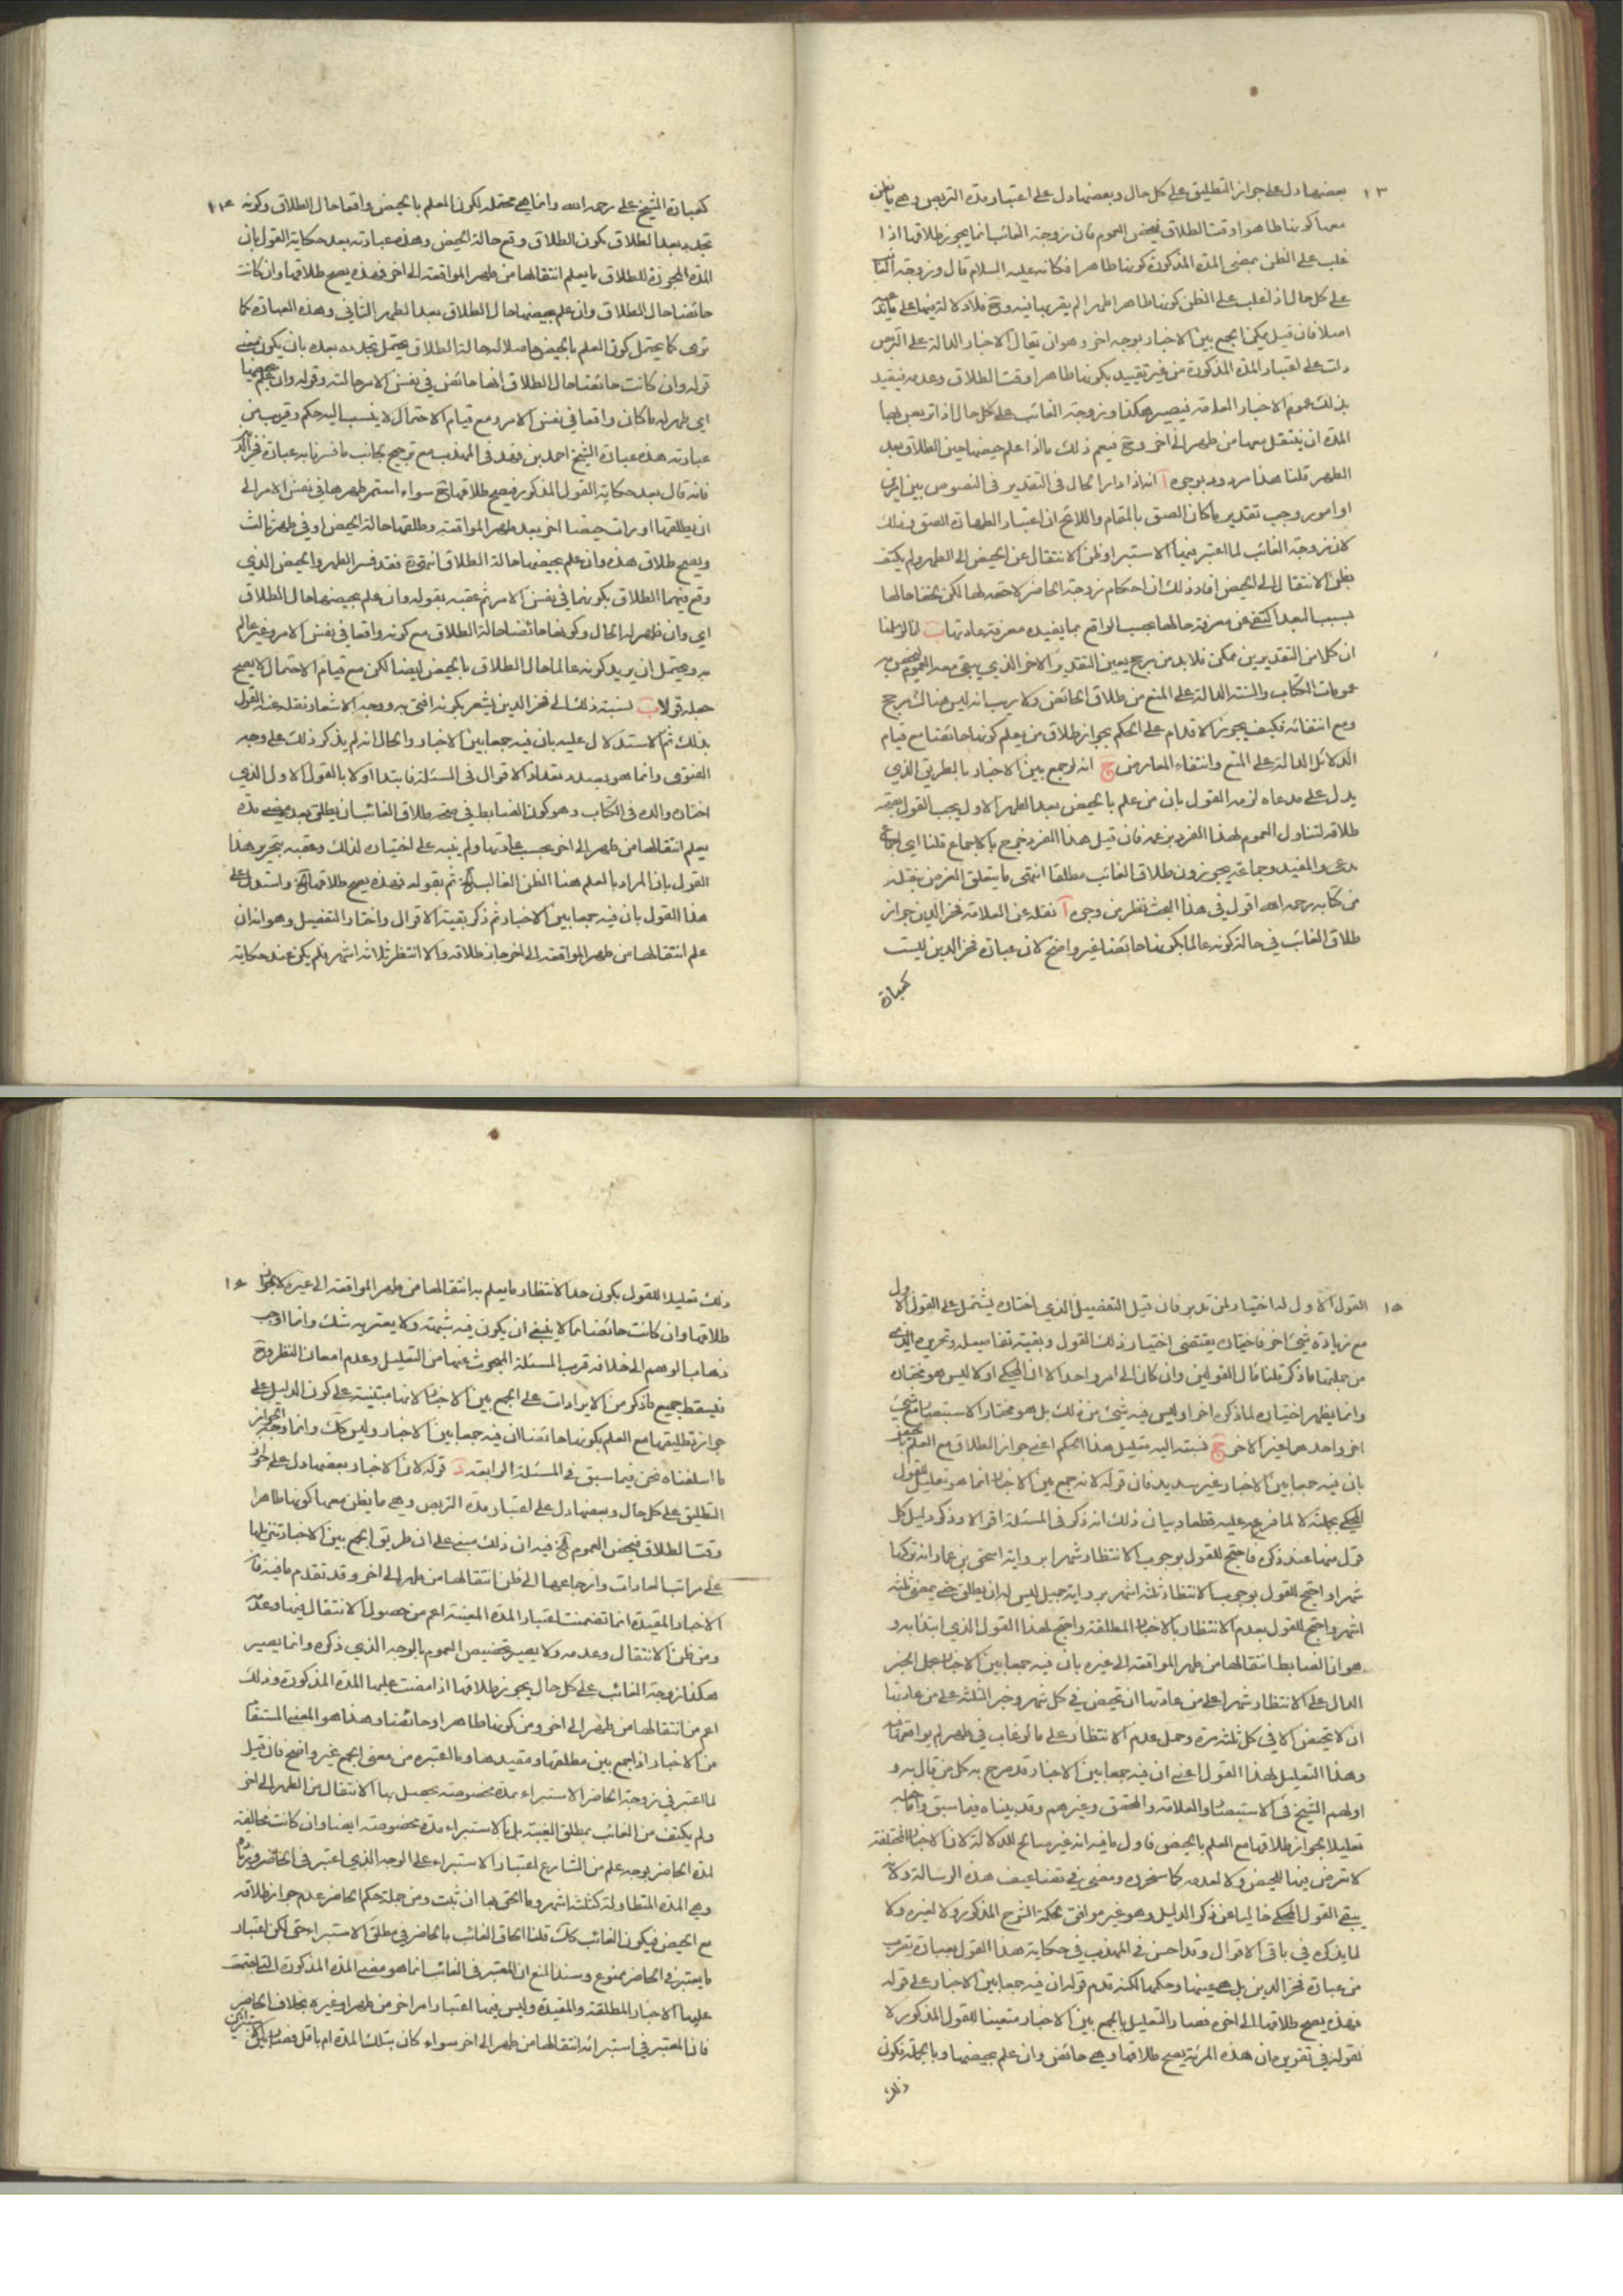 ١٣ بعضها دل على جواز التطليق على كل حال وبعضها دل على اعتبار مدة التربص وهي ما يظن
معها كونها طاهرا وقت الطلاق فيخص العموم بان زوجة الغائب انما يجوز طلاقها اذا
غلب على الظن بمضي المدة المذكورة كونها طاهرا فكانه عليه السلام قال وزوجة الغائب
على كل حال اذا غلب على الظن كونها طاهرا طهرا لم يقربها فيه وح فلا دلالة فيها على ما يدعيه
اصلا فان قيل يمكن الجمع بين الاخبار بوجه اخر وهو ان يقال الاخبار الدالة على التربص
دلت على اعتبار المدة المذكورة من غير تقييد بكونها طاهرا وقت الطلاق وعدمه فيقيد
بذلك عموم الاخبار المطلقة فيصير هكذا وزوجة الغائب على كل حال اذا تربص بها
المدة ان ينتقل معها من طهر الى اخر وح فيعم ذلك ما اذا علم حيضها حين الطلاق بعد
الطهر قلنا هذا مردود بوجوه آ انه اذا دار الحال في التقدير في النصوص بين امرين
او امور وجب تقدير ما كان الصق بالمقام واللائح ان اعتبار الطهارة الصق وذلك
لان زوجة الغائب لما اعتبر فيها الاستبرا وظن الانتقال عن الحيض الى الطهر ولم يكتف
بظن الانتقال الى الحيض افاد ذلك ان احكام زوجة الحاضر لاحقة لها لكن لخفا حالها
بسبب البعد اكتفي عن معرفة حالها بحسب الواقع بما يفيده معرفة عادتها ب انا لو ظننا
ان كلا من التقديرين ممكن فلا بد من مرجح يعين التقدير الاخر الذي يبقى معه العموم المخصوص به
عمومات الكتاب والسنة الدالة على المنع من طلاق الحائض ولا ريب انه ليس هنالك مرجح
ومع انتفائه فكيف يجوز الاقدام على الحكم بجواز طلاق من يعلم كونها حائضا مع قيام
الدلائل الدالة على المنع وانتفاء المعارض ج انه لو جمع بين الاخبار بالطريق الذي
يدل على مدعاه لزمه القول بان من علم بالحيض بعد الطهر الاول يجب القول بصحة
طلاقه لتناول العموم لهذا الفرد بزعمه فان قيل هذا الفرد خرج بالاجماع قلنا اي اجماع
يدعي والمفيد وجماعة يجوزون طلاق الغائب مطلقا انتهى ما يتعلق الغرض بنقله
من كتابه رحمه الله اقول في هذا البحث نظر من وجوه آ نقله عن العلامة فخر الدين جواز
طلاق الغائب في حالة كونه عالما بكونها حائضا غير واضح لان عبارة فخر الدين ليست
كعبارة
كعبارة الشيخ علي رحمه الله وانما هي محتملة لكون العلم بالحيض واقعا حال الطلاق وكونه ١٤
تجدد بعد الطلاق بكون الطلاق وقع حالة الحيض وهذه عبارته بعد حكاية القول بان
المدة المجوزة للطلاق ما يعلم انتقالها من طهر المواقعة الى اخر فهذه يصح طلاقها وان كانت
حائضا حال الطلاق وان علم حيضها حال الطلاق بعد الطهر الثاني وهذه العبارة كما
ترى كما يحتمل كون العلم بالحيض حاصلا له حالة الطلاق يحتمل تجدده بعده بان يكون معنى
قوله وان كانت حائضا حال الطلاق انها حائض في نفس الامر حالته وقوله وان علم حيضها
اي ظهر له ما كان واقعا في نفس الامر ومع قيام الاحتمال لا ينسب اليه حكم وقريب من
عبارته هذه عبارة الشيخ احمد بن فهد في المهذب مع ترجيح بجانب ما فسرنا به عبارة فخر الدين
فانه قال بعد حكاية القول المذكور فيصح طلاقها ح سواء استمر طهرها في نفس الامر الى
ان يطلقها او رات حيضا اخر بعد طهر المواقعة وطلقها حالة الحيض او في طهر ثالث
ويصح طلاق هذه وان علم بحيضها حالة الطلاق انتهى فقد فسر الطهر والحيض الذي
وقع فيهما الطلاق بكونهما في نفس الامر ثم عقبه بقوله وان علم بحيضها حال الطلاق
اي وان ظهر له الحال وكونها حائضا حالة الطلاق مع كونه واقعا في نفس الامر وغير عالم
به ويحتمل ان يريد كونه عالما حال الطلاق بالحيض ايضا لكن مع قيام الاحتمال لا يصح
جعله قولا ب نسبته ذلك الى فخر الدين يشعر بكونه افتى به ووجه الاشعار نقله عنه القول
بذلك ثم الاستدلال عليه بان فيه جمعا بين الاخبار والحال انه لم يذكر ذلك على وجه
الفتوى وانما هو بصدد تعداد الاقوال في المسئلة فابتدا اولا بالقول الاول الذي
اختاره والده في الكتاب وهو كون الضابط في صحة طلاق الغائب ان يطلق بعد مضي مدة
يعلم انتقالها من طهر الى اخر بحسب عادتها ولم ينبه على اختياره لذلك وعقبه بتحرير هذا
القول بان المراد بالعلم هنا الظن الغالب الخ ثم بقوله فهذه يصح طلاقها الخ واستدل على
هذا القول بان فيه جمعا بين الاخبار ثم ذكر بقية الاقوال واختار التفصيل وهو انه ان
علم انتقالها من طهر المواقعة الى اخر جاز طلاقه والا انتظر ثلاثة اشهر فلم يكن عند حكاية
١٥ القول الاول له اختيار لمن تدبر فان قيل التفصيل الذي اختاره يشتمل على القول الاول
مع زيادة شيء اخر فاختياره يقتضي اختيار ذلك القول وبقية تفاصيله وتحريره الذي
من جملتها ما ذكر قلنا مال القولين وان كان الى امر واحد الا ان المحكي اولا ليس هو مختاره
وانما يظهر اختياره لما ذكره اخرا وليس فيه شيء من ذلك بل هو مختار الاستبصار مع شيء
اخر واحدهما غير الاخر ج نسبته اليه تعليل هذا الحكم اعني جواز الطلاق مع العلم بالحيض
بان فيه جمعا بين الاخبار غير سديد فان قوله لانه جمع بين الاخبار انما هو تعليل للقول
المحكي بجملته لا لما فرعه عليه قطعا وبيان ذلك انه ذكر في المسئلة اقوالا وذكر دليل كل
قول منها عند ذكره فاحتج للقول بوجوب الانتظار شهرا برواية اسحق بن عمار انه يتركها
شهرا واحتج للقول بوجوب الانتظار ثلثة اشهر برواية جميل ليس له ان يطلق حتى يمضي ثلثة
اشهر واحتج للقول بعدم الانتظار بالاخبار المطلقة واحتج لهذا القول الذي ابتدا به و
هو ان الضابط انتقالها من طهر المواقعة الى غيره بان فيه جمعا بين الاخبار بحمل الخبر
الدال على الانتظار شهرا على من عادتها ان تحيض في كل شهر وخبر الثلثة على من عادتها
ان لا تحيض الا في كل ثلثة مرة وحمل عدم الانتظار على ما لو غاب في طهر لم يواقعها فيه
وهذا التعليل لهذا القول اعني ان فيه جمعا بين الاخبار قد صرح به كل من قال به و
اولهم الشيخ في الاستبصار والعلامة والمحقق وغيرهم وقد بيناه فيما سبق واما جعله
تعليلا لجواز طلاقها مع العلم بالحيض فاول ما فيه انه غير صالح للدلالة لان الاخبار المختلفة
لا تعرض فيها للحيض ولا لعدمه كما سنحرره ومضى في تضاعيف هذه الرسالة ولا
يبقى القول المحكي خاليا عن ذكر الدليل وهو غير موافق لحكمة الشرح المذكور ولا لغيره ولا
لما يذكره في باقي الاقوال وقد احسن في المهذب في حكاية هذا القول بعبارة تقرب
من عبارة فخر الدين بل هي عينها وحكمها لكنه قدم قوله ان فيه جمعا بين الاخبار على قوله
فهذه يصح طلاقها الى اخره فصار التعليل بالجمع بين الاخبار متعينا للقول المذكور لا
لقوله في تقويه فان هذه المرئة يصح طلاقها وهي حائض وان علم بحيضها وبالجملة فكون
ذلك
ذلك تعليلا للقول بكون حد الانتظار ما يعلم به انتقالها من طهر المواقعة الى غيره لا لجواز ١٦
طلاقها وان كانت حائضا مما لا ينبغي ان يكون فيه شبهة ولا يعتريه شك وانما اوجب
ذهاب الوهم الى خلافه قرب المسئلة المبحوث عنها من التعليل وعدم امعان النظر وح
فيسقط جميع ما ذكر من الايرادات على الجمع بين الاخبار لانها مبتنية على كون الدليل على
جواز تطليقها مع العلم بكونها حائضا ان فيه جمعا بين الاخبار وليس كذلك وانما وجه الجواز
ما اسلفناه نحن فيما سبق في المسئلة الرابعة د قوله لان الاخبار بعضها دل على جواز
التطليق على كل حال وبعضها دل على اعتبار مدة التربص وهي ما يظن معها كونها طاهرا
وقت الطلاق فيخص العموم الخ فيه ان ذلك مبني على ان طريق الجمع بين الاخبار تنزيلها
على مراتب العادات وارجاعها الى ظن انتقالها من طهر الى اخر وقد تقدم ما فيه فان
الاخبار المقيدة انما تضمنت اعتبار المدة المعينة اعم من حصول الانتقال فيها وعدمه
ومن ظن الانتقال وعدمه ولا يصير تخصيص العموم بالوجه الذي ذكره وانما يصير
هكذا زوجة الغائب على كل حال يجوز طلاقها اذا مضت عليها المدة المذكورة وذلك
اعم من انتقالها من طهر الى اخر ومن كونها طاهرا وحائضا وهذا هو المعنى المستفاد
من الاخبار اذا جمع بين مطلقها ومقيدها وما اعتبره من معنى الجمع غير واضح فان قيل
لما اعتبر في زوجة الحاضر الاستبراء بمدة مخصوصة يحصل بها الانتقال من الطهر الى اخر
ولم يكتف من الغائب بمطلق الغيبة بل بالاستبراء مدة مخصوصة ايضا وان كانت مخالفة
لمدة الحاضر بوجه علم من الشارع اعتبار الاستبراء على الوجه الذي اعتبر في الحاضر وزيادة
وهي المدة المتطاولة كثلثة اشهر وما الحق بها ان ثبت ومن جملة حكم الحاضر عدم جواز طلاقه
مع الحيض فيكون الغائب كذلك قلنا الحاق الغائب بالحاضر في مطلق الاستبراء حتى لكن اعتبار
ما يعتبر في الحاضر ممنوع وسند المنع ان المعتبر في الغائب انما هو مضي المدة المذكورة التي اجتمعت
عليها الاخبار المطلقة والمقيدة وليس فيها اعتبار امر اخر من طهر او غيره بخلاف الحاضر
فان المعتبر في استبرائه انتقالها من طهر الى اخر سواء كان بتلك المدة ام باقل